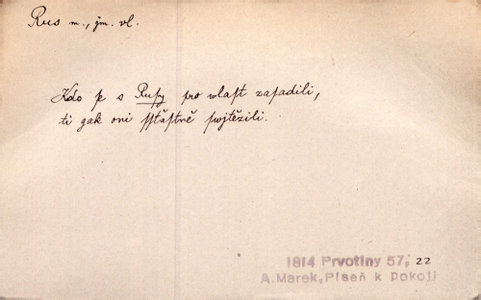 Rus m., jm. vl.
Kdo se s Rusy pro vlast zasadili,
ti gak oni sstastně swjtězili.
1814 Prvotiny 57, 22
A.Marek,Píseň k pokoji